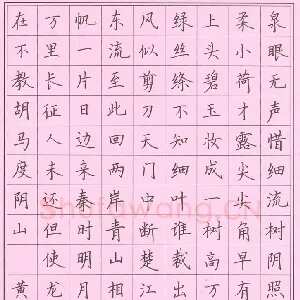 泉眼无声惜细流树阴照
柔小荷才露尖尖角早有
上头碧玉妆成一树高万
绿丝绦不知细叶谁裁出
风似剪刀天门中断楚江
东流至此回两岸青山相
帆一片日边来秦时明月
万里长征人未还但使龙
在不教胡马度阴山黄